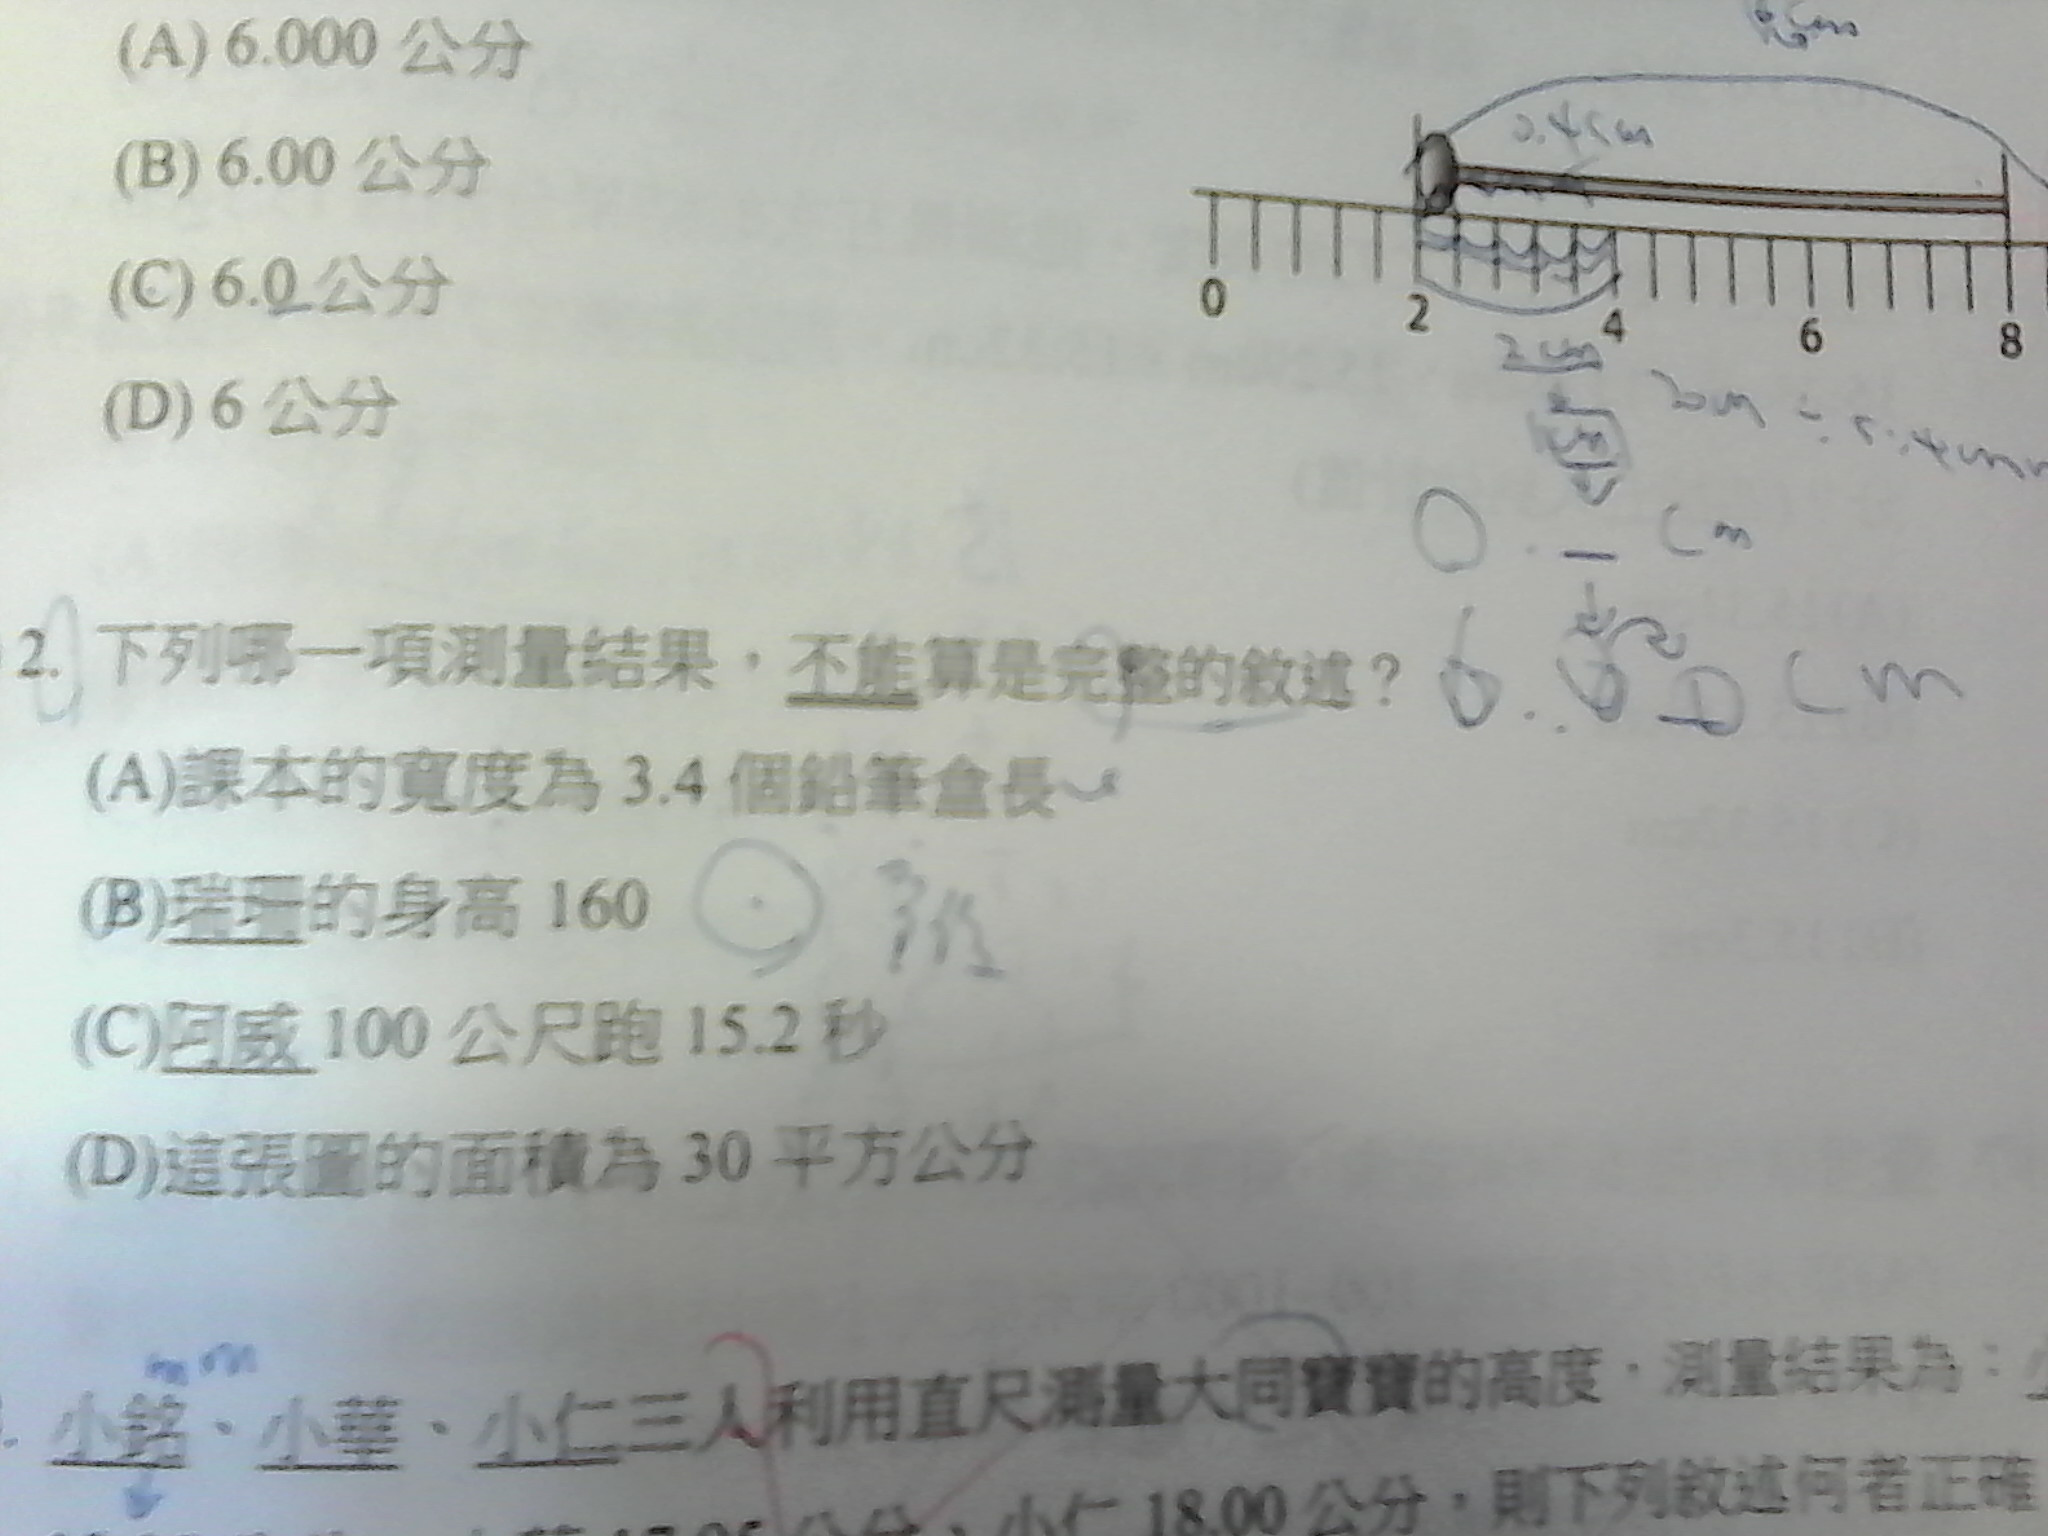 (A) 6.000 公分
(B) 6.00 公分
(C) 6.0 公分
(D) 6 公分
0.4cm
0 2 4 6 8
2cm
cm
cm
2. 下列哪一項測量結果，不能算是完整的敘述？
(A)課本的寬度為 3.4 個鉛筆盒長
(B)瑞珊的身高 160
(C)阿威 100 公尺跑 15.2 秒
(D)這張圖的面積為 30 平方公分
mm
小銘、小華、小仁三人利用直尺測量大同寶寶的高度，測量結果為：
公分、小仁 18.00 公分，則下列敘述何者正確